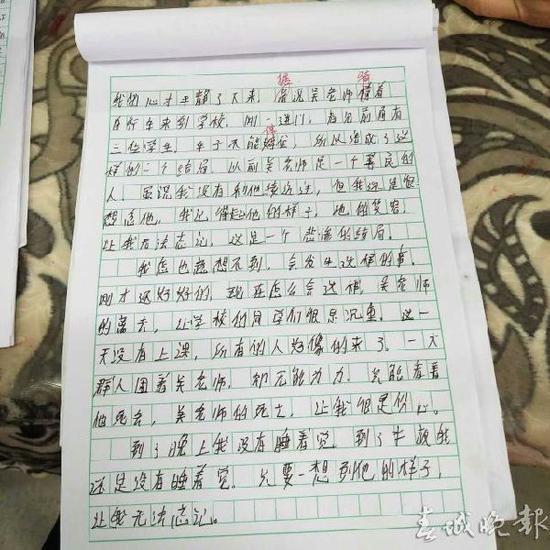 据 骑
我的心才平静了下来，据说吴老师骑着
自行车来到学校，刚一进门，有分前面有
停
三位学生，车子不能停住，所以造成了这
样的一个结局，以前吴老师是一个善良的
人，虽说我没有和他接近过，但我还是很
想念他，我记得起他的样子，他的笑容，
让我无法忘记，这是一个悲惨的结局。
我怎也想不到，会发生这样的事，
刚才还好好的，现在怎么会这样，吴老师
的离去，让学校的同学们很是沉重，这一
天没有上课，所有的人都像的来了，一大
群人围着吴老师，却无能力为，只能看着
他死去，吴老师的死亡，让我很是伤心。
到了晚上我没有睡着觉，到了半夜
还是没有睡着觉，只要一想到他的样子，
让我无法忘记。
春城晚報